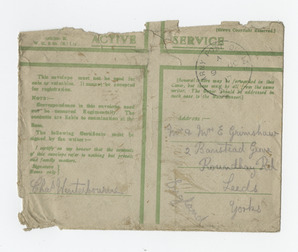 ACTIVE SERVICE
This envelope must not be used for
coin or valuables. It cannot be accepted
for registration.
NOTE:—
Correspondence in this envelope need
not be censored Regimentally. The
contents are liable to examination at the
Base.
The following Certificate must be
signed by the writer:—
I certify on my honour that the contents
of this envelope refer to nothing but private
and family matters.
Signature
Name only
Several letters may be forwarded in this
Cover, but these must be all from the same
writer. The Cover should be addressed to
Mr E Grimshaw
2
Roundhay Rd
Leeds
Yorks